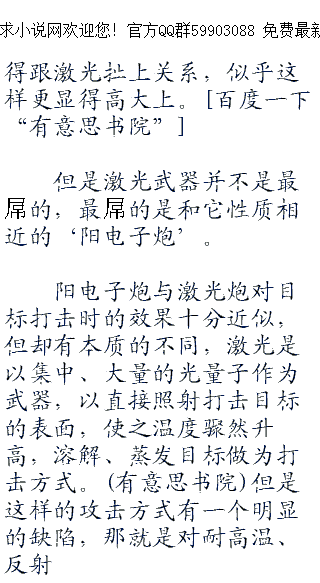 求小说网欢迎您！官方QQ群59903088 免费最新
得跟激光扯上关系，似乎这
样更显得高大上。[百度一下
“有意思书院”]
但是激光武器并不是最
屌的，最屌的是和它性质相
近的‘阳电子炮’。
阳电子炮与激光炮对目
标打击时的效果十分近似，
但却有本质的不同，激光是
以集中、大量的光量子作为
武器，以直接照射打击目标
的表面，使之温度骤然升
高，溶解、蒸发目标做为打
击方式。(有意思书院)但是
这样的攻击方式有一个明显
的缺陷，那就是对耐高温、
反射